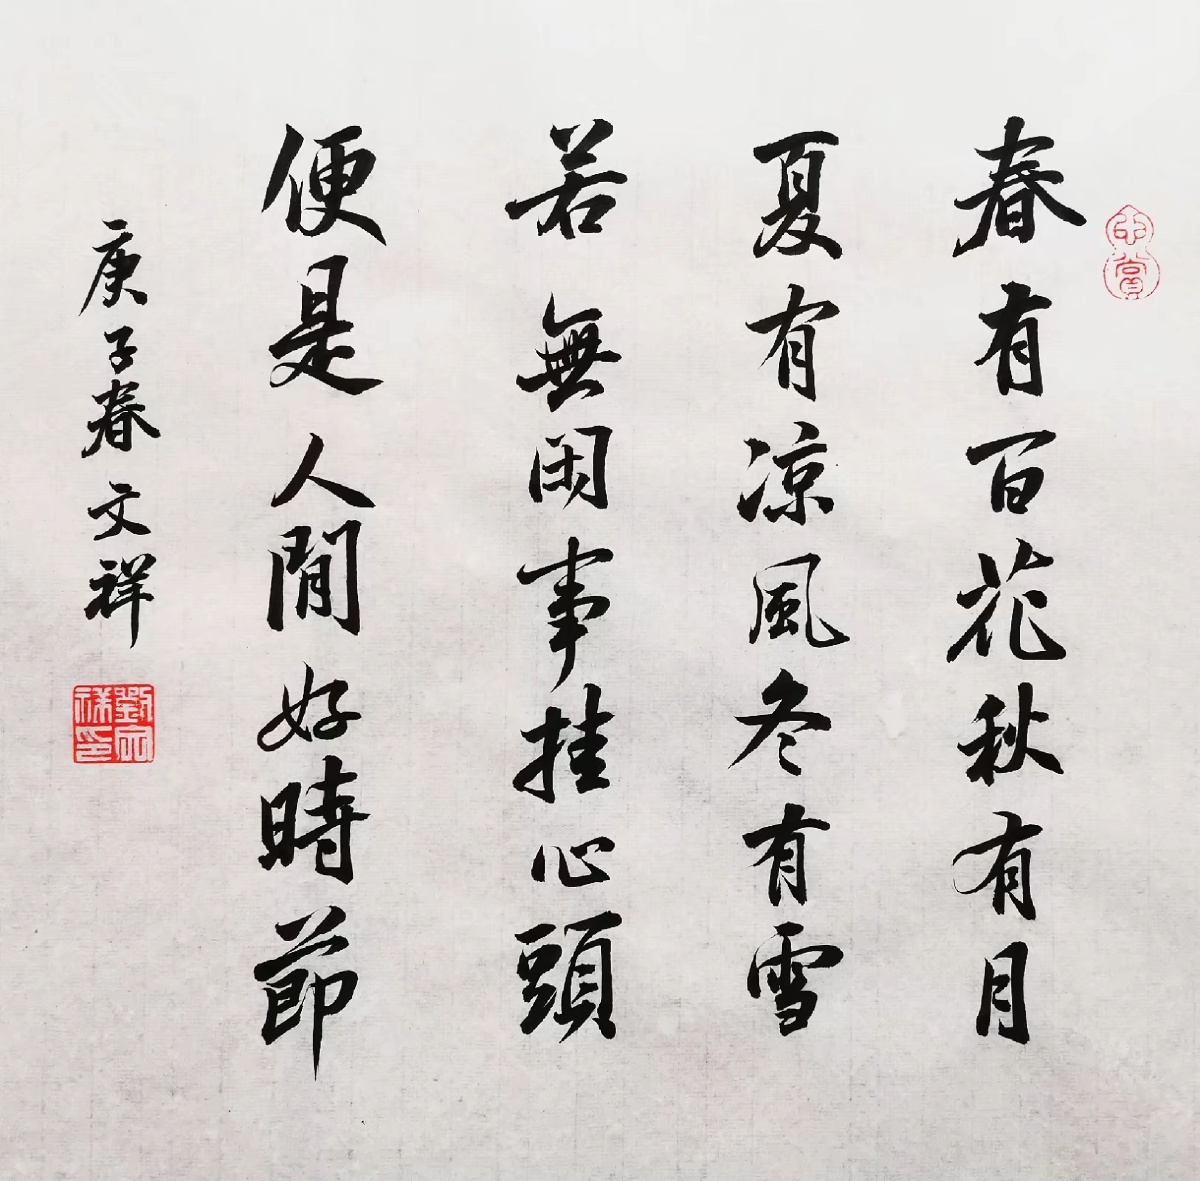 春有百花秋有月
夏有凉風冬有雪
若無閑事挂心頭
便是人間好時節
庚子春文祥
劉文祥印